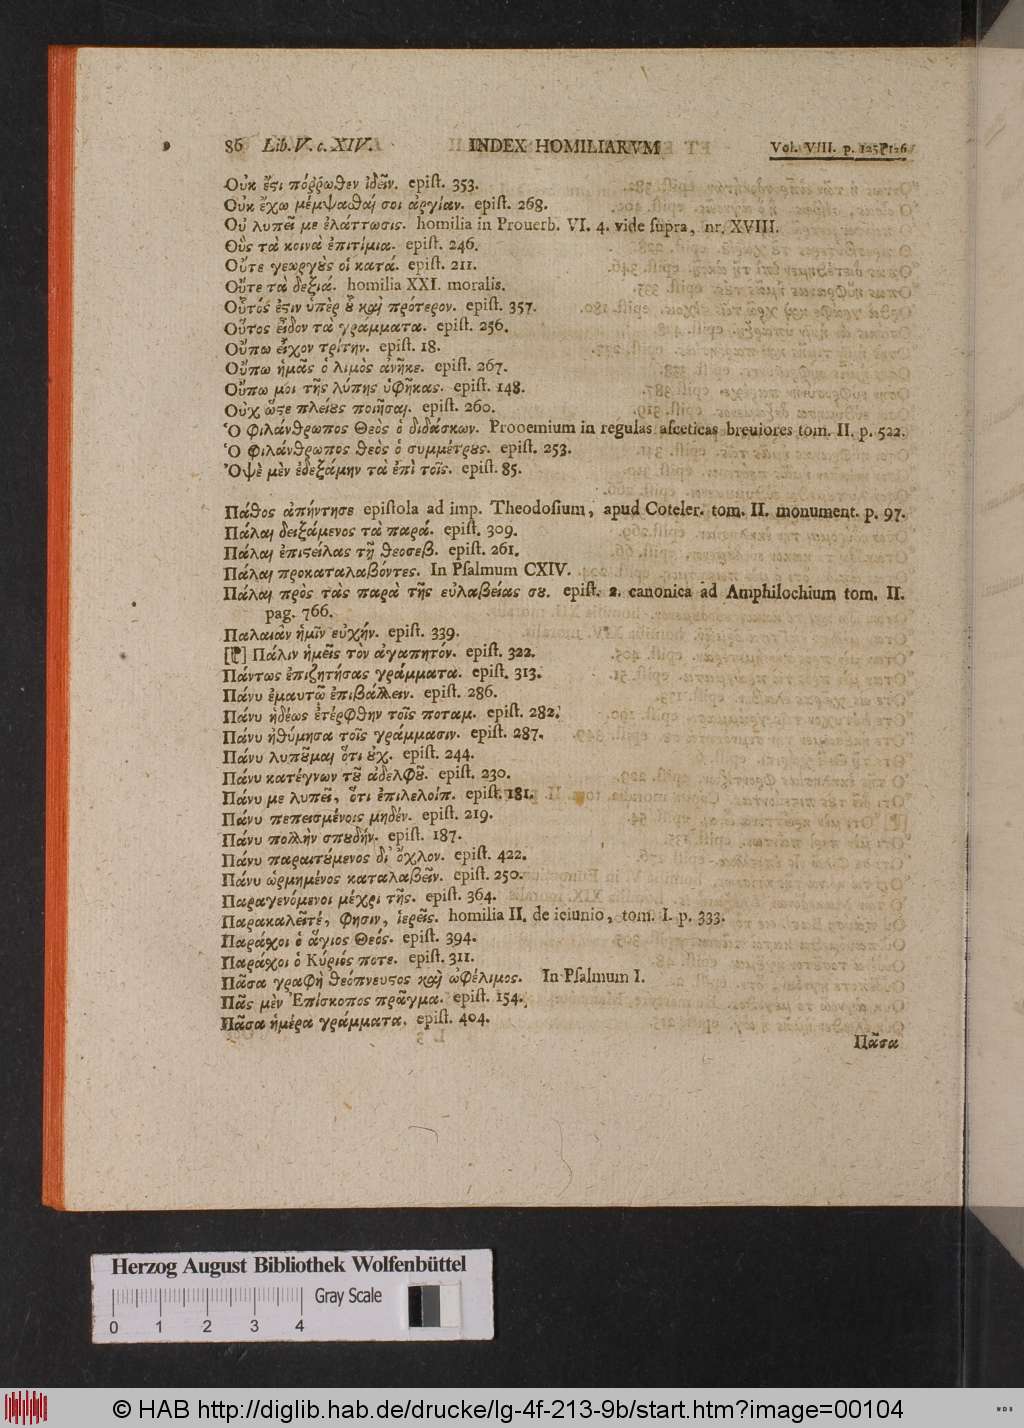 86 Lib. V. c. XIV. INDEX HOMILIARVM Vol. VIII. p. 125⁋126
Οὐκ ἔϛι πόῤῥωθεν ἰδεῖν. epiſt. 353.
Οὐκ ἔχω μέμψασθαί σοι ἀργίαν. epiſt. 268.
Οὐ λυπεῖ με ἐλάττωσις. homilia in Prouerb. VI. 4. vide ſupra, nr. XVIII.
Οὓς τὰ κοινὰ ἐπιτίμια. epiſt. 246.
Οὔτε γεωργοὺς οἱ κατά. epiſt. 211.
Οὔτε τὰ δεξιά. homilia XXI. moralis.
Οὗτός ἐϛιν ὑπὲρ οὗ καὶ πρότερον. epiſt. 357.
Οὕτος εἶδον τὰ γράμματα. epiſt. 256.
Οὔπω εἶχον τρίτην. epiſt. 18.
Οὔπω ἡμᾶς ὁ λιμὸς ἀνῆκε. epiſt. 267.
Οὔπω μοι τῆς λύπης ὑφῆκας. epiſt. 148.
Οὐχ ὥϛε πλείους ποιῆσαι. epiſt. 260.
Ὁ φιλάνθρωπος Θεὸς ὁ διδάσκων. Prooemium in regulas aſceticas breuiores tom. II. p. 522.
Ὁ φιλάνθρωπος θεὸς ὁ συμμέτρους. epiſt. 253.
Ὀψὲ μὲν ἐδεξάμην τὰ ἐπὶ τοῖς. epiſt. 85.
Πάθος ἀπήντησε epiſtola ad imp. Theodoſium, apud Coteler. tom. II. monument. p. 97.
Πάλαι δειξάμενος τὰ παρά. epiſt. 309.
Πάλαι ἐπιϛείλας τῇ θεοσεβ. epiſt. 261.
Πάλαι προκαταλαβόντες. In Pſalmum CXIV.
Πάλαι πρὸς τὰς παρὰ τῆς εὐλαβείας σου. epiſt. 2. canonica ad Amphilochium tom. II.
pag. 766.
Παλαιὰν ἡμῖν εὐχήν. epiſt. 339.
[⁋] Πάλιν ἡμεῖς τὸν ἀγαπητόν. epiſt. 322.
Πάντως ἐπιζητήσας γράμματα. epiſt. 313.
Πάνυ ἐμαυτῷ ἐπιβάλλειν. epiſt. 286.
Πάνυ ἡδέως ἐτέρφθην τοῖς ποταμ. epiſt. 282.
Πάνυ ἠθύμησα τοῖς γράμμασιν. epiſt. 287.
Πάνυ λυποῦμαι ὅτι οὐχ. epiſt. 244.
Πάνυ κατέγνων τοῦ ἀδελφοῦ. epiſt. 230.
Πάνυ με λυπεῖ, ὅτι ἐπιλελοίπ. epiſt. 181.
Πάνυ πεπεισμένοις μηδέν. epiſt. 219.
Πάνυ πολλὴν σπουδήν. epiſt. 187.
Πάνυ παραιτούμενος δι' ὄχλον. epiſt. 422.
Πάνυ ὡρμημένος καταλαβεῖν. epiſt. 250.
Παραγενόμενοι μέχρι τῆς. epiſt. 364.
Παρακαλεῖτέ, φησιν, ἱερεῖς. homilia II. de ieiunio, tom. I. p. 333.
Παράσχοι ὁ ἅγιος Θεός. epiſt. 394.
Παράσχοι ὁ Κύριός ποτε. epiſt. 311.
Πᾶσα γραφὴ θεόπνευϛος καὶ ὠφέλιμος. In Pſalmum I.
Πᾶς μὲν Ἐπίσκοπος πρᾶγμα. epiſt. 154.
Πᾶσα ἡμέρα γράμματα. epiſt. 404.
Πᾶσα
Herzog August Bibliothek Wolfenbüttel
Gray Scale
0 1 2 3 4
© HAB http://diglib.hab.de/drucke/lg-4f-213-9b/start.htm?image=00104